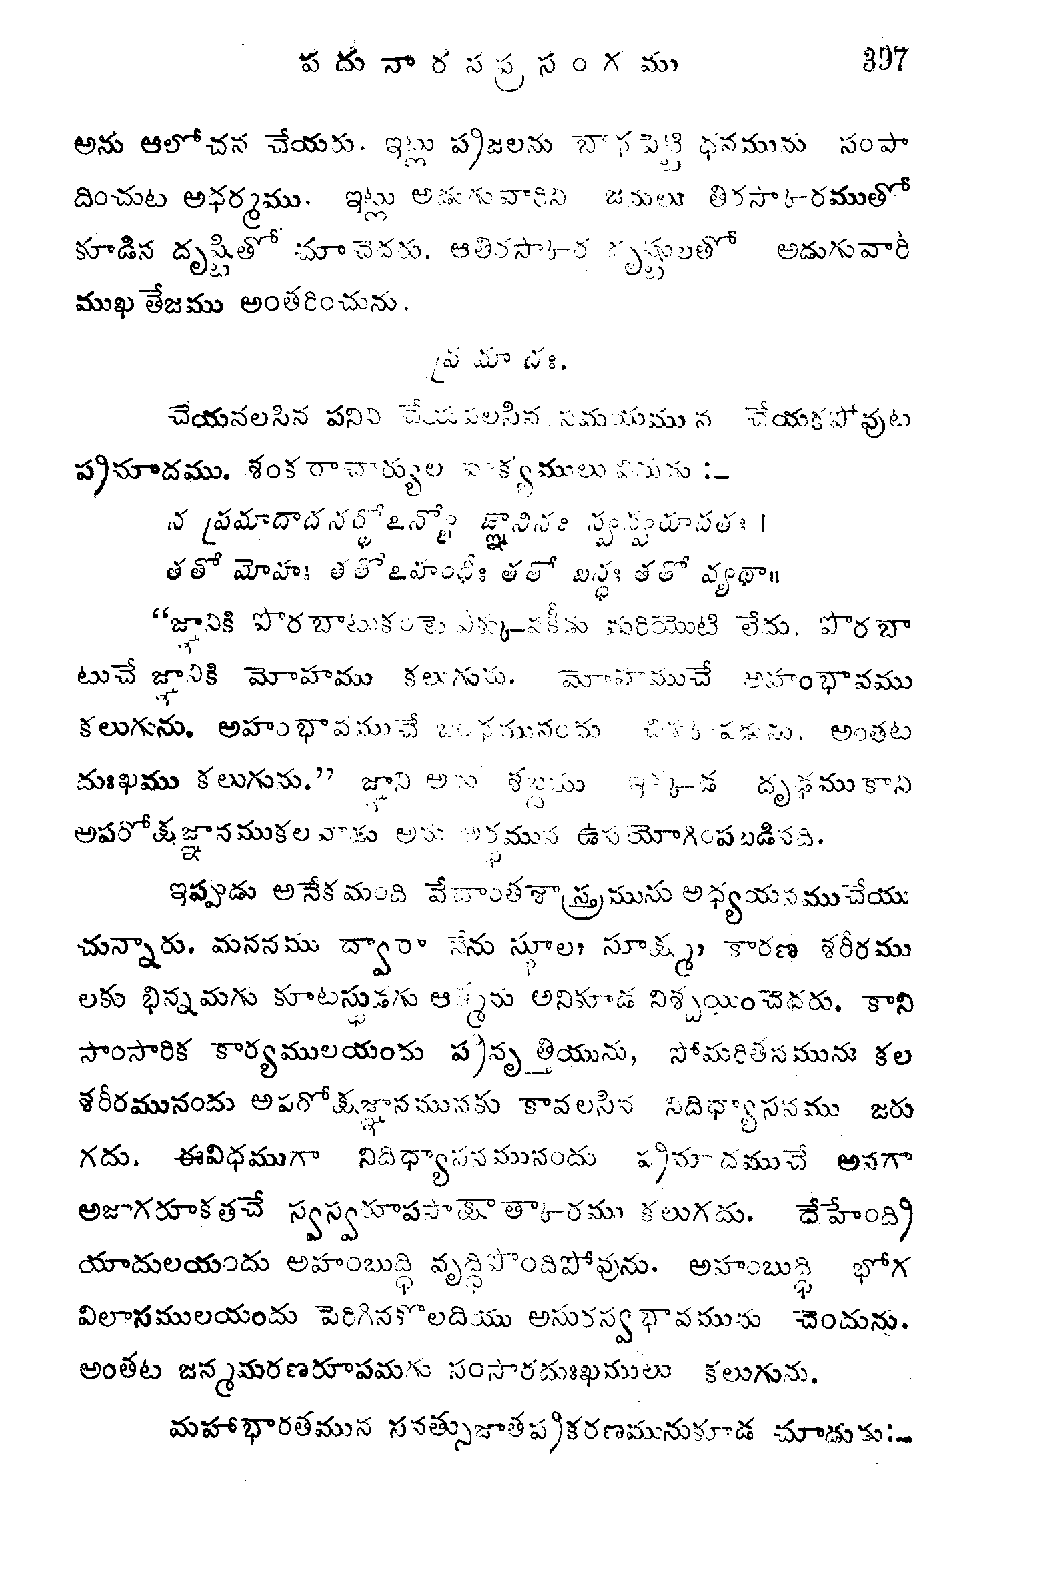 పదునారనప్రసంగము 397
అను ఆలోచన చేయరు. ఇట్లు ప్రజలను బాధపెట్టి ధనమును సంపా
దించుట అధర్మము. ఇట్లు అడుగువారిని జనులు తిరస్కారముతో
కూడిన దృష్టితో చూచెదరు. ఆతిరస్కార దృష్టులతో అడుగువారి
ముఖతేజము అంతరించును.
ప్రమాదః.
చేయవలసిన పనిని చేయవలసిన సమయమున చేయకపోవుట
ప్రమాదము. శంకరాచార్యుల వాక్యములు వినుము :–
న ప్రమాదాదనర్థోఽన్యో జ్ఞానినః స్వస్వరూపతః ।
తతో మోహః తతోఽహంధీః తతో బన్ధః తతో వ్యథా॥
“జ్ఞానికి పొరబాటుకంటె ఎక్కువకీడు మరియొటి లేదు. పొరబా
టుచే జ్ఞానికి మోహము కలుగును. మోహముచే అహంభావము
కలుగును. అహంభావముచే బంధమునందు చిక్కుపడును. అంతట
దుఃఖము కలుగును.” జ్ఞాని అను శబ్దము ఇక్కడ దృఢముకాని
అపరోక్షజ్ఞానముకలవాడు అను అర్థమున ఉపయోగింపబడినది.
ఇప్పుడు అనేకమంది వేదాంతశాస్త్రమును అధ్యయనముచేయు
చున్నారు. మననము ద్వారా నేను స్థూల, సూక్ష్మ, కారణ శరీరము
లకు భిన్నమగు కూటస్థుడగు ఆత్మను అనికూడ నిశ్చయించెదరు. కాని
సాంసారిక కార్యములయందు ప్రవృత్తియును, సోమరితనమును కల
శరీరమునందు అపరోక్షజ్ఞానమునకు కావలసిన నిదిధ్యాసనము జరు
గదు. ఈవిధముగా నిదిధ్యాసనమునందు ప్రమాదముచే అనగా
అజాగరూకతచే స్వస్వరూపసాక్షాత్కారము కలుగదు. దేహేంద్రి
యాదులయందు అహంబుద్ధి వృద్ధిపొందిపోవును. అహంబుద్ధి భోగ
విలాసములయందు పెరిగినకొలదియు అసురస్వభావమును చెందును.
అంతట జన్మమరణరూపమగు సంసారదుఃఖములు కలుగును.
మహాభారతమున సనత్సుజాతప్రకరణమునుకూడ చూడుడు:–